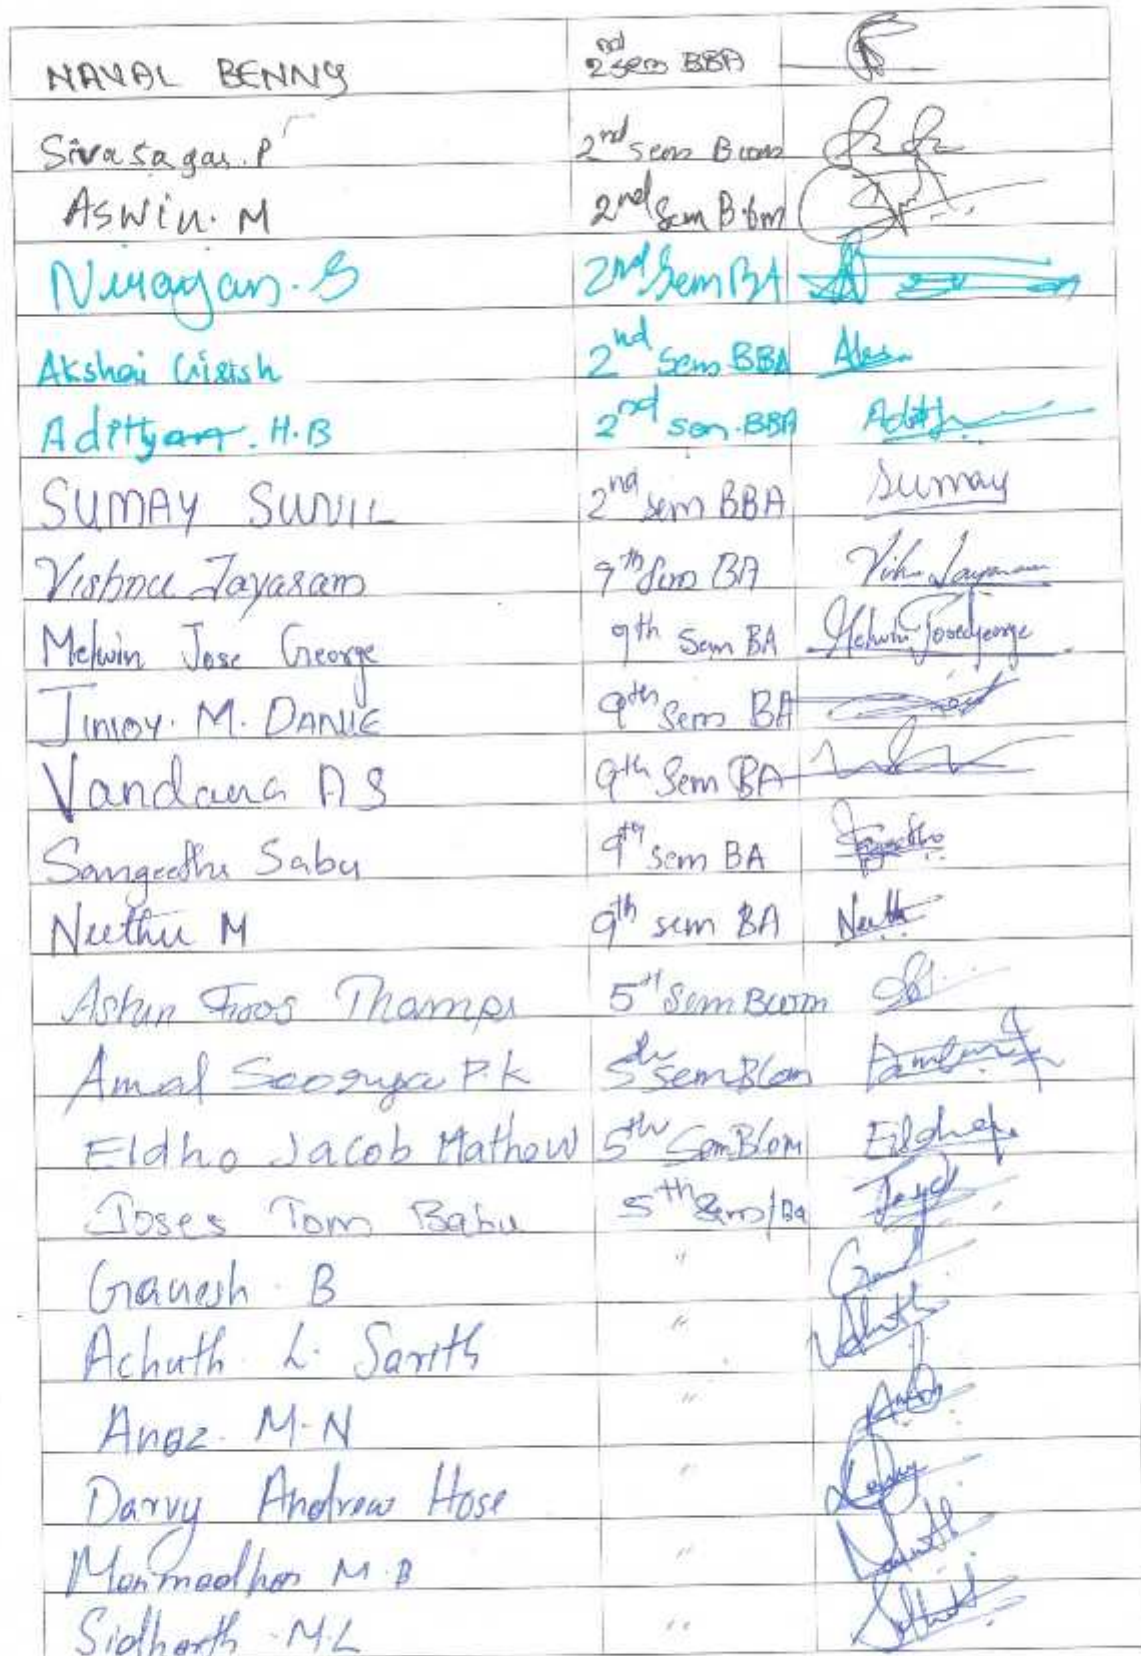 NAVAL BENNY 2nd sem BBA
Sivasagar. P 2nd sem Bcom
ASWIN. M 2nd Sem B.Com
Niranjan. S 2nd Sem BA
Akshai Girish 2nd Sem BBA
Adithyan. H.B 2nd sem. BBA Adith
SUMAY SUNIL 2nd sem BBA Sumay
Vishnu Jayaram 9th Sem BA
Melwin Jose George 9th Sem BA Melwin Jose George
JIMOY. M. DANIE 9th Sem BA
Vandana A S 9th Sem BA
Sangeetha Sabu 9th sem BA
Neethu M 9th sem BA Neethu
Thampi 5th Sem Bcom
Amal Soorya P.K 5th sem BCom
Eldho Jacob Mathew 5th Sem BCom Eldho
Joses Tom Babu 5th Sem/Ba
Ganesh. B "
Achuth. L. Sarith " Achuth
Anaz. M.N "
Darvy Andrew Hose "
Manmadhan M.B "
Sidharth. M.L "